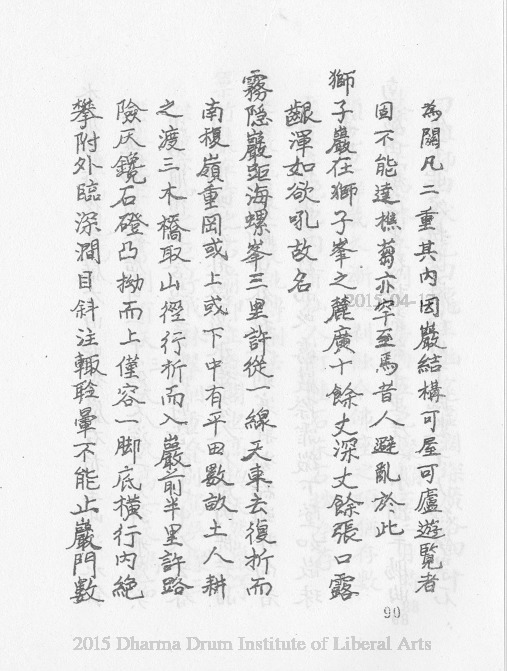 為關凡二重其內因巖結構可屋可廬遊覽者
固不能達樵蒭亦罕至焉昔人避亂於此
獅子巖在獅子峯之麓廣十餘丈深丈餘張口露
齦渾如欲吼故名
霧隱巖距海螺峯三里許從一線天東去復折而
南複嶺重岡或上或下中有平田數畝土人耕
之渡三木橋取山徑行折而入巖前半里許路
險仄鑱石磴凸拗而上僅容一脚底橫行內絶
攀附外臨深澗目斜注輒眩暈不能止巖門數
90
2015-04-
2015 Dharma Drum Institute of Liberal Arts